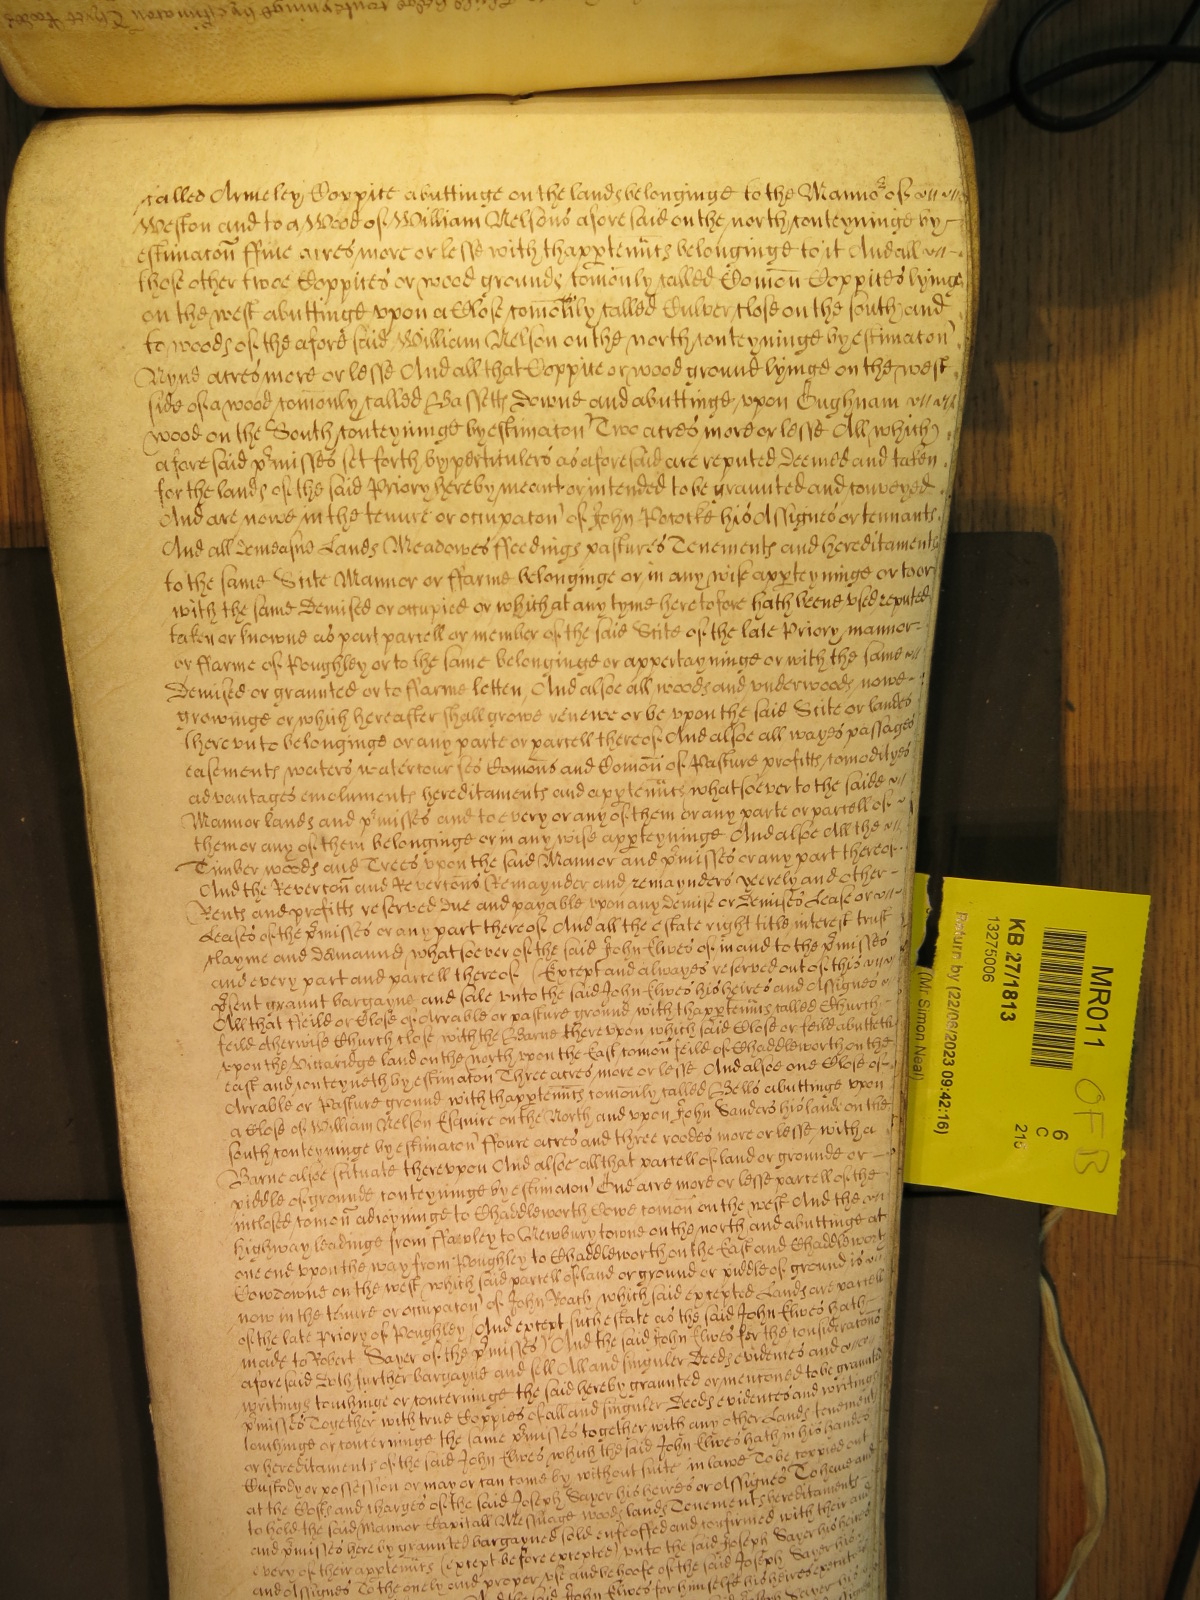 called Armeley Coppice abuttinge on the lands belonginge to the Manno^r of
Weston and to a Wood of William Nelsons aforesaid on the north conteyninge by
estimacōn ffiue acres more or lesse with thapp̱tenn̄cs belonginge to it And all
those other twoe Coppices or wood grounds com̄only called Com̄on Coppices lyinge
on the west abuttinge vpon a Close com̄only called Culver close on the south and
to woods of the afore said William Nelson on the north conteyninge by estimacōn
Nyne acres more or lesse And all that Coppice or wood ground lyinge on the west
side of a wood com̄only called Bassetts Downe and abuttinge vpon
wood on the South conteyninge by estimacōn Two acres more or lesse All which
afore said p̱misses set forth by perticulers as aforesaid are reputed deemed and taken
for the lands of the said Priory hereby meant or intended to be graunted and conveyed
And are nowe in the tenure or occupacōn of John Pococke his Assignes or tennants
And all demeasne Lands Meadowes ffeedings pastures Tenements and hereditaments
to the same Scite Mannor or ffarme belonginge or in any wise app̱teyninge or to or
with the same demised or occupied or which at any tyme heretofore hath beene vsed reputed
taken or knowne as part parcell or member of the said Scite of the late Priory mannor
or ffarme of Poughley or to the same belonginge or appertayninge or with the same
demised or graunted or to ffarme letten And alsoe all woods and vnderwoods nowe
growinge or which hereafter shall growe renewe or be vpon the said Scite or lands
therevnto belonginge or any parte or parcell thereof And alsoe all wayes passages
easements waters watercourses Com̄ons and Com̄on of Pasture profitts com̄odityes
advantages emoluments hereditaments and app̱tenn̄cs whatsoever to the saide
Mannor lands and p̱misses and to every or any of them or any parte or parcell of
them or any of them belonginge or in any wise app̱teyninge And alsoe All the
Timber woods and Trees vpon the said Mannor and p̱misses or any part thereof
And the Revercōn and Revercōns Remaynder and remaynders yeerely and other
Rents and profitts reserved due and payable vpon any demise or demises Lease or
Leases of the p̱misses or any part thereof And all the estate right title interest trust
clayme and demaund whatsoever of the said John Elwes of in and to the p̱misses
and every part and parcell thereof (Except and alwayes reserved out of this
p̱sent graunt bargayne and sale vnto the said John Elwes his heires and Assignes
All that ffeild or Close of Arrable or pasture ground with thapp̱tenn̄cs called Church
feild otherwise Church close with the Barne therevpon which said Close or feild abutteth
vpon the Viccaridge land on the north vpon the East com̄on feild of Chaddleworth on the
east and conteyneth by estimacōn Three acres more or lesse And alsoe one Close of
Arrable or Pasture ground with thapp̱tenn̄cs com̄only called Bells abuttinge vpon
a Close of William Nelson Esquire on the North and vpon John Sanders his lande on the
south conteyninge by estimacōn ffoure acres and three roodes more or lesse with a
Barne alsoe scituate therevpon And alsoe all that parcell of land or grounde or
piddle of grounde conteyninge by estimacōn One acre more or lesse parcell of the
inclosed com̄on adioyninge to Chaddleworth Cowe com̄on on the west And the
highway leadinge from ffawley to Newbury towne on the north and abuttinge at
one end vpon the way from Poughley to Chaddleworth on the East and Chaddleworth
Cowdowne on the west which said parcell of land or ground or piddle of ground is
now in the tenure or occupacōn of John Roath which said excepted Lands are parcell
of the late Priory of Poughley (And except such estate as the said John Elwes hath
made to Robert Sayer of the p̱misses) And the said John Elwes for the consideracōns
aforesaid doth further bargayne and sell All and singuler Deeds evidences and
writings touchinge or concerninge the said hereby graunted or mencōned to be graunted
p̱misses Together with true Coppies of all and singuler Deeds evidences and writings
touchinge or concerninge the same p̱misses together with any other Lands tenements
or hereditaments of the said John Elwes which the said John Elwes hath in his hands
Custody or possession or may or can come by without suite in lawe To be coppied out
at the Costs and charges of the said Joseph Sayer his heires or Assignes To have and
to hold the said Mannor Capitall Messuage woods lands Tenements hereditaments
and p̱misses hereby graunted bargayned sold enfeoffed and confirmed with their and
every of their app̱tenn̄cs (except before excepted) vnto the said Joseph Sayer his heires
and Assignes To the onely and proper vse and behoofe of the said Joseph Sayer his
And the said John Elwes for himselfe his heires executors
MR011
KB 27/1813
13275006
Return by (22/06/2023 09:42:16)
(Mr Simon Neal)
6
C
215
OFB